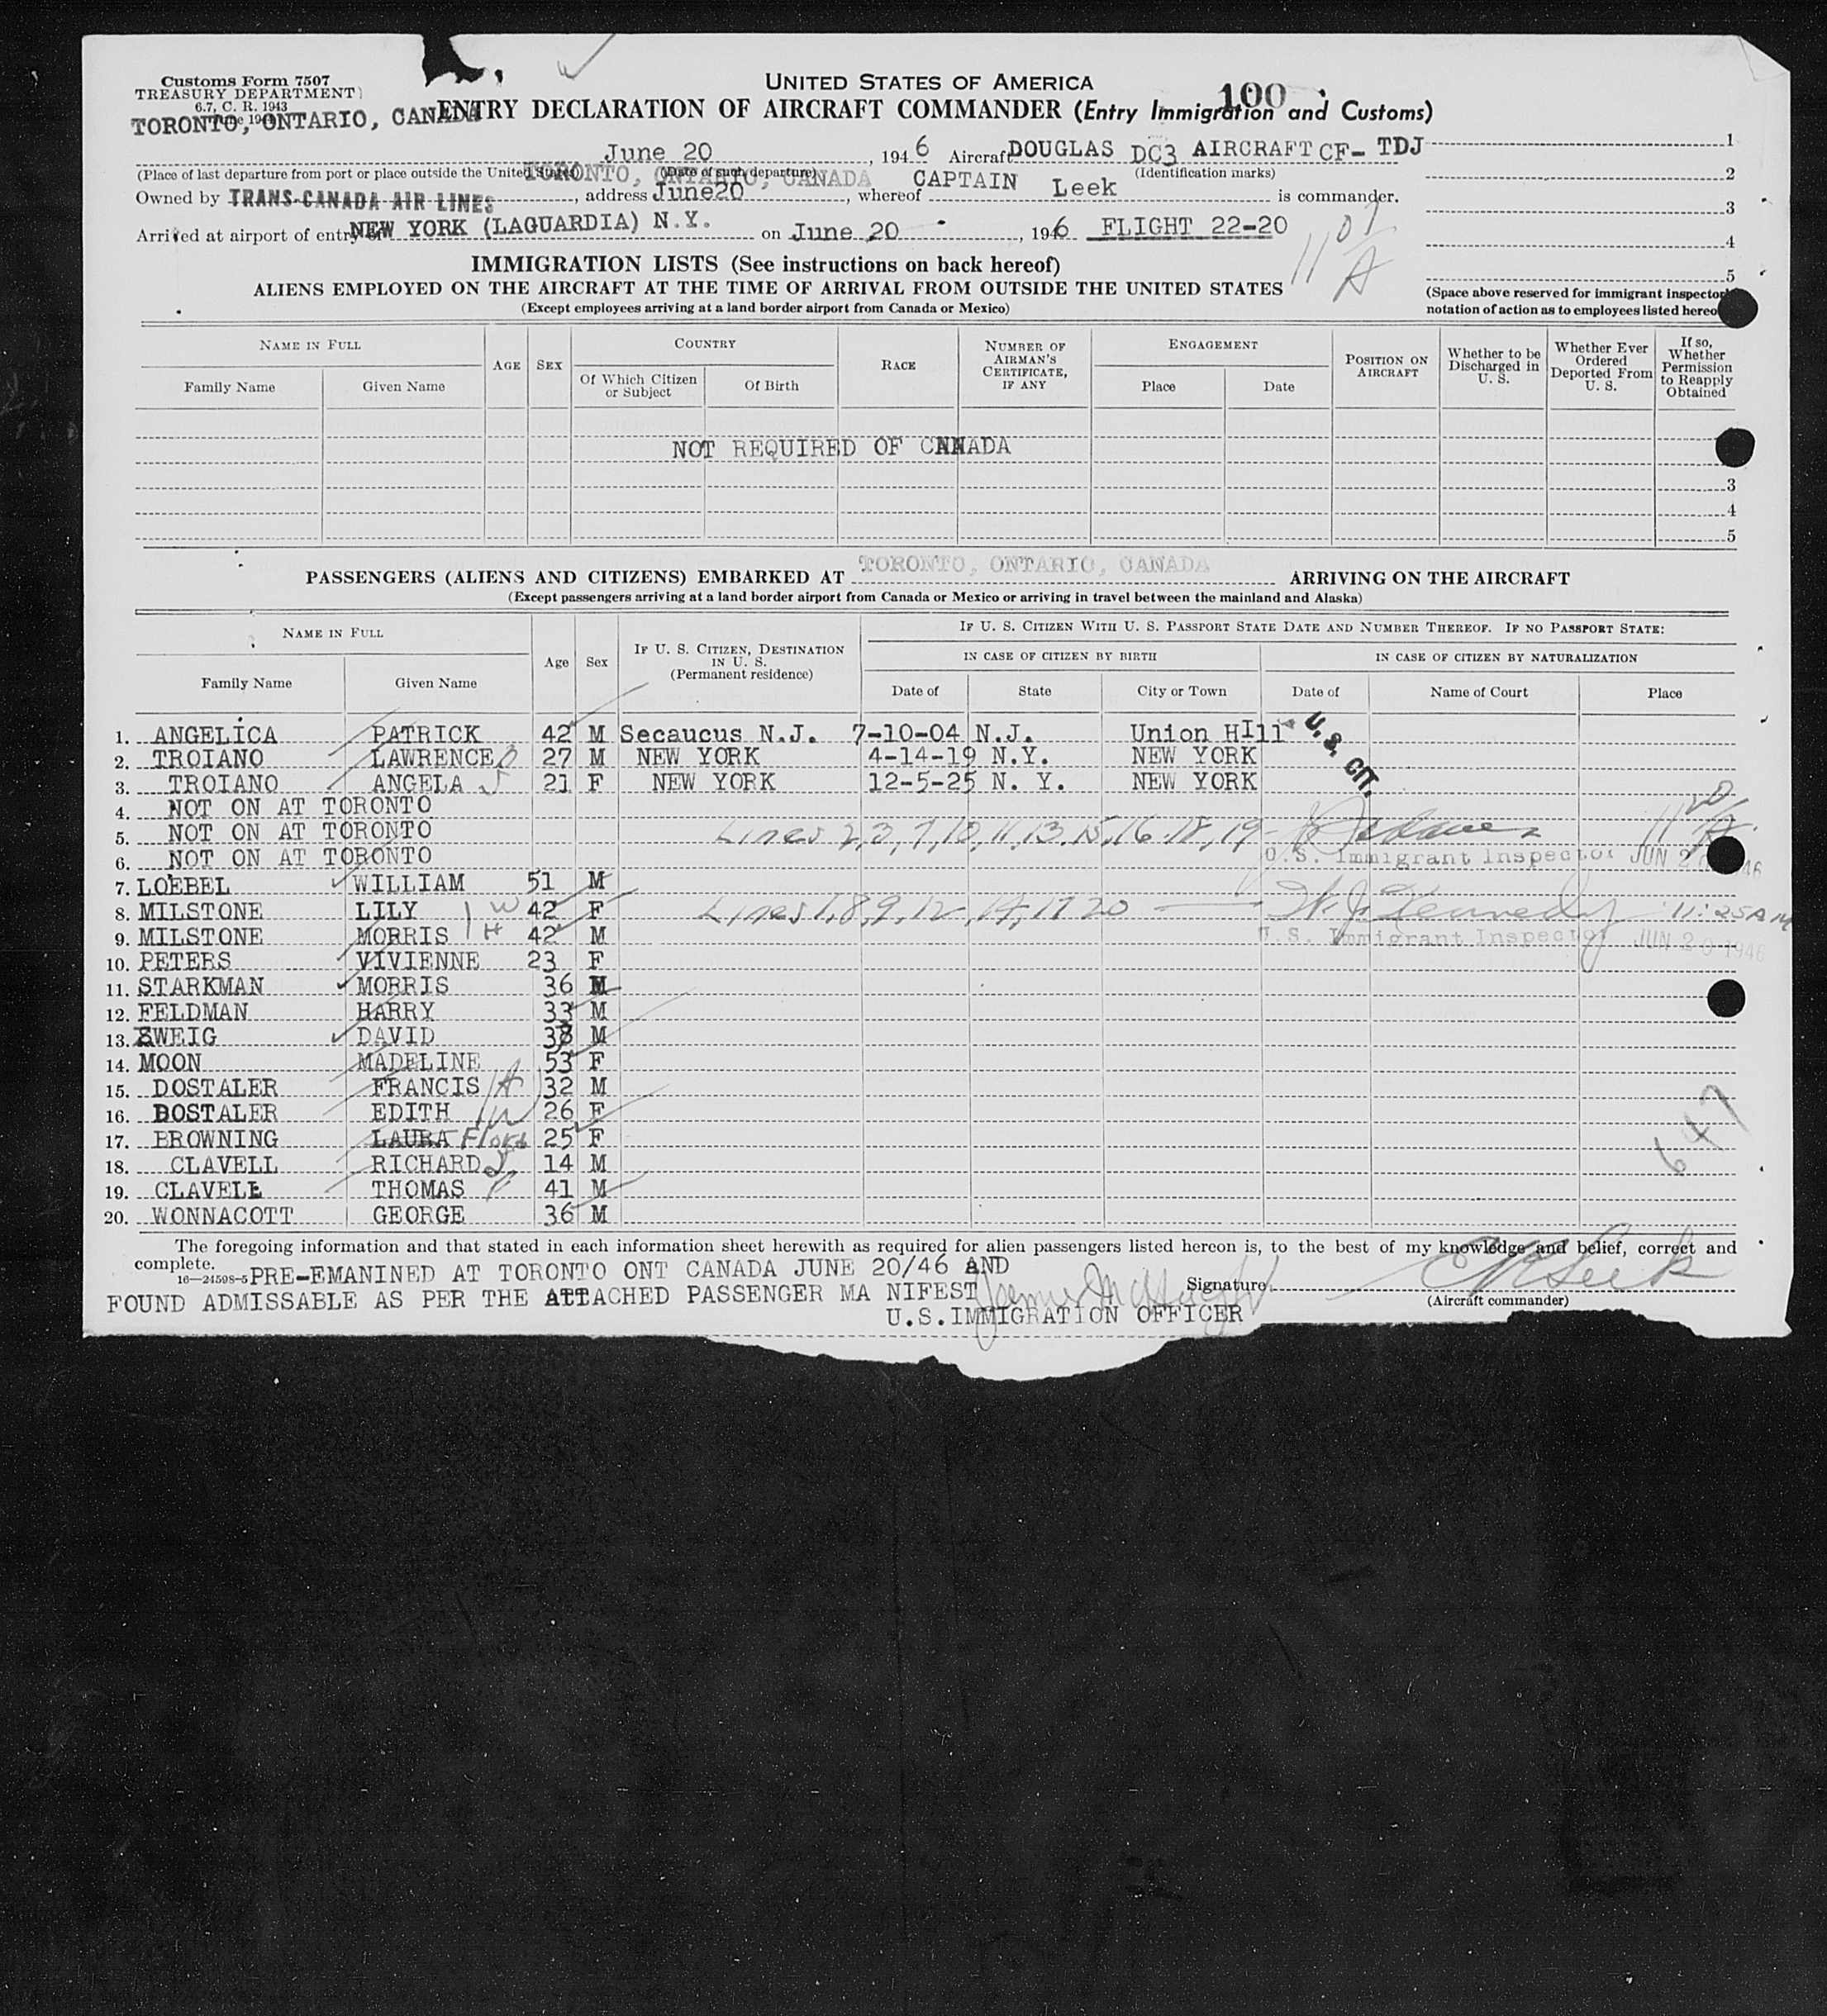 Customs Form 7507
TREASURY DEPARTMENT
6.7, C. R. 1943
UNITED STATES OF AMERICA
100
ENTRY DECLARATION OF AIRCRAFT COMMANDER (Entry Immigration and Customs)
TORONTO, ONTARIO, CANADA
June 20, 1946 Aircraft DOUGLAS DC3 AIRCRAFT CF- TDJ
1
(Place of last departure from port or place outside the United States) (Date of such departure) (Identification marks)
2
TORONTO, ONTARIO, CANADA
Owned by TRANS-CANADA AIR LINES, address June20, whereof CAPTAIN Leek is commander.
3
Arrived at airport of entry of NEW YORK (LAGUARDIA) N.Y. on June 20, 1946 FLIGHT 22-20
4
11 07 A
IMMIGRATION LISTS (See instructions on back hereof)
5
ALIENS EMPLOYED ON THE AIRCRAFT AT THE TIME OF ARRIVAL FROM OUTSIDE THE UNITED STATES
(Except employees arriving at a land border airport from Canada or Mexico)
(Space above reserved for immigrant inspector
notation of action as to employees listed hereo
NAME IN FULL AGE SEX COUNTRY RACE NUMBER OF AIRMAN'S CERTIFICATE, IF ANY ENGAGEMENT POSITION ON AIRCRAFT Whether to be Discharged in U. S. Whether Ever Ordered Deported From U. S. If so, Whether Permission to Reapply Obtained
Family Name Given Name Of Which Citizen or Subject Of Birth Place Date
NOT REQUIRED OF CANADA
3
4
5
PASSENGERS (ALIENS AND CITIZENS) EMBARKED AT TORONTO, ONTARIO, CANADA ARRIVING ON THE AIRCRAFT
(Except passengers arriving at a land border airport from Canada or Mexico or arriving in travel between the mainland and Alaska)
NAME IN FULL Age Sex IF U. S. CITIZEN, DESTINATION IN U. S. (Permanent residence) IF U. S. CITIZEN WITH U. S. PASSPORT STATE DATE AND NUMBER THEREOF. IF NO PASSPORT STATE:
IN CASE OF CITIZEN BY BIRTH IN CASE OF CITIZEN BY NATURALIZATION
Family Name Given Name Date of State City or Town Date of Name of Court Place
1. ANGELICA PATRICK 42 M Secaucus N.J. 7-10-04 N.J. Union HIll U. S. CIT.
2. TROIANO LAWRENCE 27 M NEW YORK 4-14-19 N.Y. NEW YORK
3. TROIANO ANGELA 21 F NEW YORK 12-5-25 N. Y. NEW YORK
4. NOT ON AT TORONTO
5. NOT ON AT TORONTO Lines 2,3,7,10,11,13.15,16.18,19- 11 20 A
6. NOT ON AT TORONTO U.S. Immigrant Inspector JUN 20 1946
7. LOEBEL WILLIAM 51 M
8. MILSTONE LILY W 42 F Lines 1,8,9,12,14,17 20 W.J. Kennedy 11:25AM
9. MILSTONE MORRIS H 42 M U.S. Immigrant Inspector JUN 20 1946
10. PETERS VIVIENNE 23 F
11. STARKMAN MORRIS 36 M
12. FELDMAN HARRY 33 M
13. ZWEIG DAVID 38 M
14. MOON MADELINE 53 F
15. DOSTALER FRANCIS H 32 M
16. DOSTALER EDITH W 26 F
17. BROWNING LAURA 25 F
18. CLAVELL RICHARD 14 M
19. CLAVELL THOMAS 41 M
20. WONNACOTT GEORGE 36 M
647
The foregoing information and that stated in each information sheet herewith as required for alien passengers listed hereon is, to the best of my knowledge and belief, correct and
complete.
16—24598-5 PRE-EMANINED AT TORONTO ONT CANADA JUNE 20/46 AND
FOUND ADMISSABLE AS PER THE ATTACHED PASSENGER MA NIFEST Signature
(Aircraft commander)
U.S.IMMIGRATION OFFICER